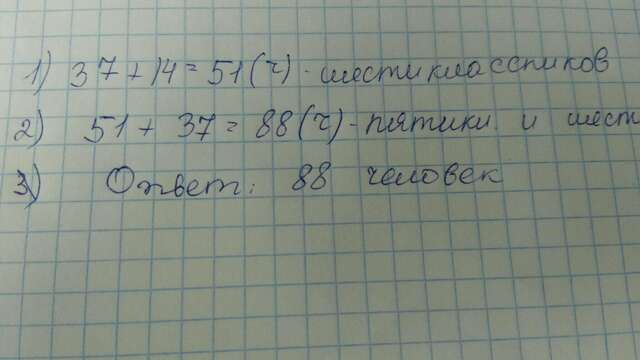 1) 37 + 14 = 51 (ч) - шестиклассников
2) 51 + 37 = 88 (ч) - пятикл. и шест
3) Ответ: 88 человек